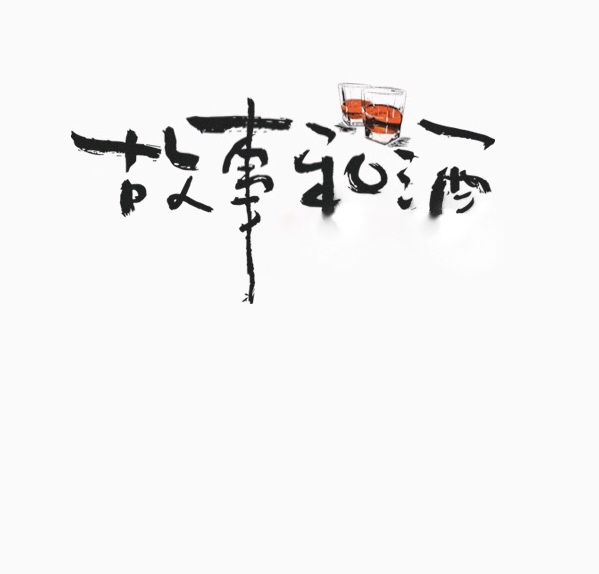 故事和酒